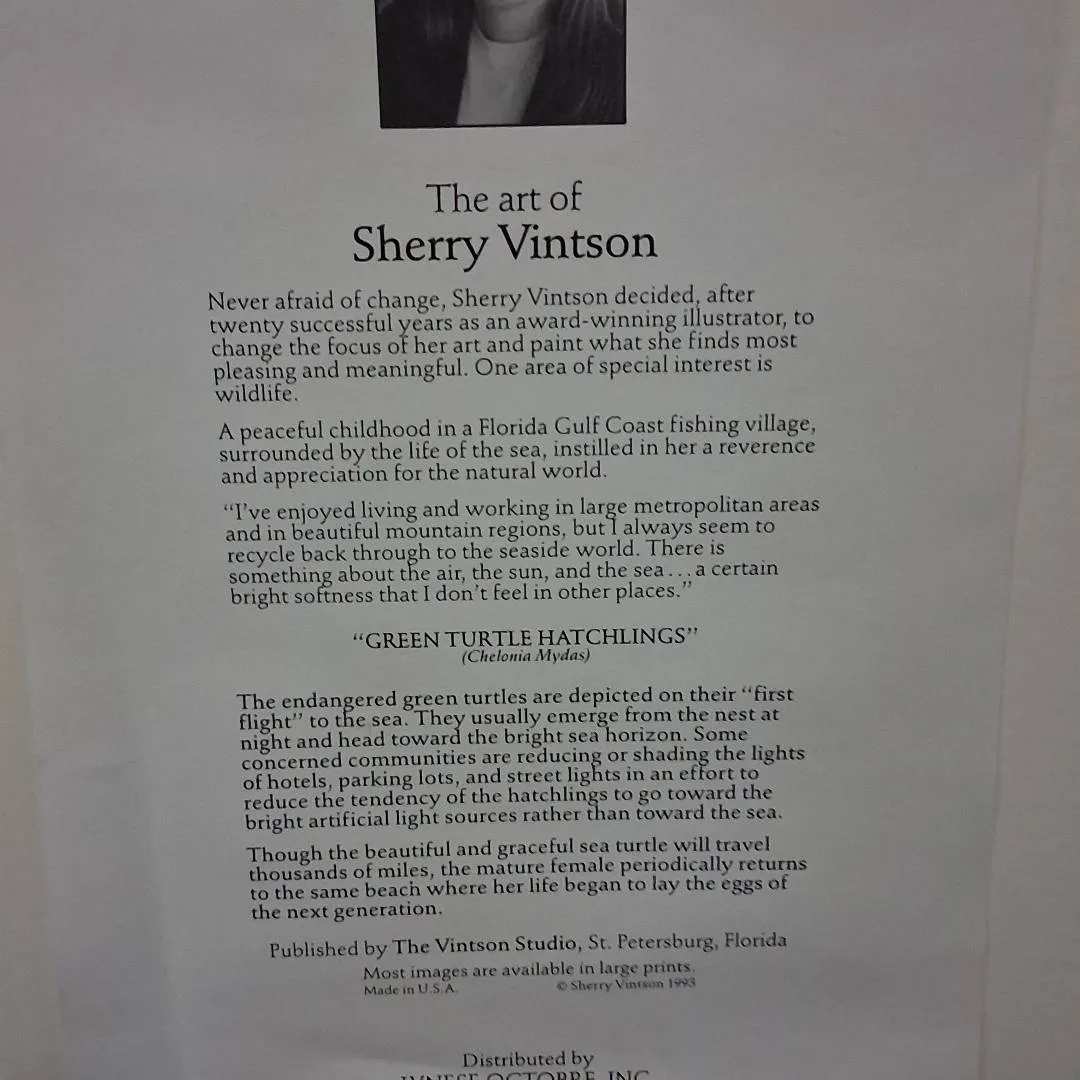 The art of
Sherry Vintson
Never afraid of change, Sherry Vintson decided, after
twenty successful years as an award-winning illustrator, to
change the focus of her art and paint what she finds most
pleasing and meaningful. One area of special interest is
wildlife.
A peaceful childhood in a Florida Gulf Coast fishing village,
surrounded by the life of the sea, instilled in her a reverence
and appreciation for the natural world.
“I’ve enjoyed living and working in large metropolitan areas
and in beautiful mountain regions, but I always seem to
recycle back through to the seaside world. There is
something about the air, the sun, and the sea...a certain
bright softness that I don’t feel in other places.”
“GREEN TURTLE HATCHLINGS”
(Chelonia Mydas)
The endangered green turtles are depicted on their “first
flight” to the sea. They usually emerge from the nest at
night and head toward the bright sea horizon. Some
concerned communities are reducing or shading the lights
of hotels, parking lots, and street lights in an effort to
reduce the tendency of the hatchlings to go toward the
bright artificial light sources rather than toward the sea.
Though the beautiful and graceful sea turtle will travel
thousands of miles, the mature female periodically returns
to the same beach where her life began to lay the eggs of
the next generation.
Published by The Vintson Studio, St. Petersburg, Florida
Most images are available in large prints.
Made in U.S.A. © Sherry Vintson 1993
Distributed by
OCTOBRE, INC